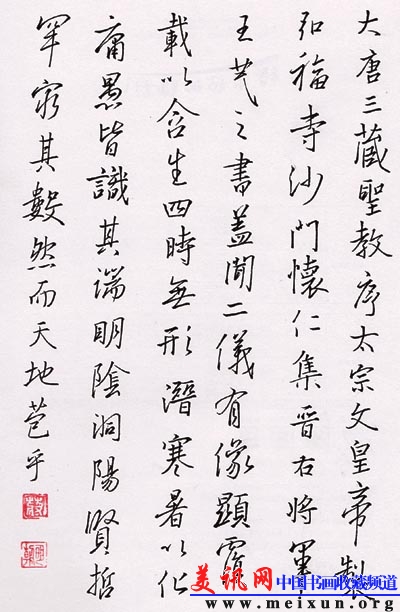 大唐三藏聖教序太宗文皇帝製
弘福寺沙門懷仁集晉右將軍
王羲之書蓋聞二儀有像顯覆
載以含生四時無形潛寒暑以化
庸愚皆識其端明陰洞陽賢哲
罕窮其數然而天地苞乎
美讯网 中国书画收藏频道
www.meixun.org